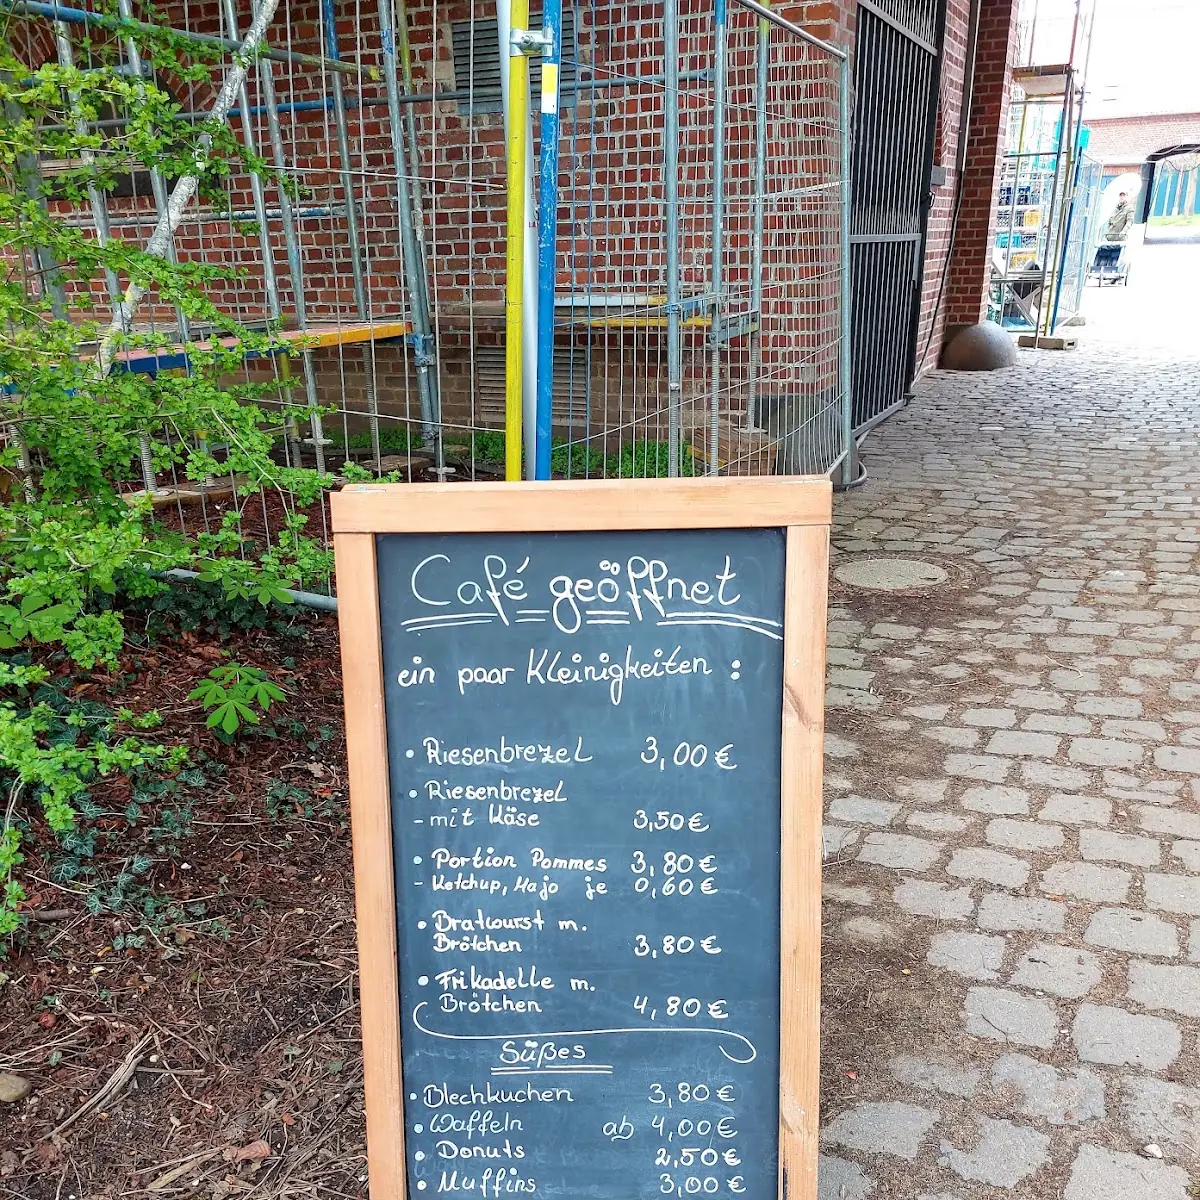 Café geöffnet
ein paar Kleinigkeiten :
• Riesenbrezel 3,00 €
• Riesenbrezel
- mit Käse 3,50 €
• Portion Pommes 3,80 €
- Ketchup, Majo je 0,60 €
• Bratwurst m.
Brötchen 3,80 €
• Frikadelle m.
Brötchen 4,80 €
Süßes
• Blechkuchen 3,80 €
• Waffeln ab 4,00 €
• Donuts 2,50 €
• Muffins 3,00 €